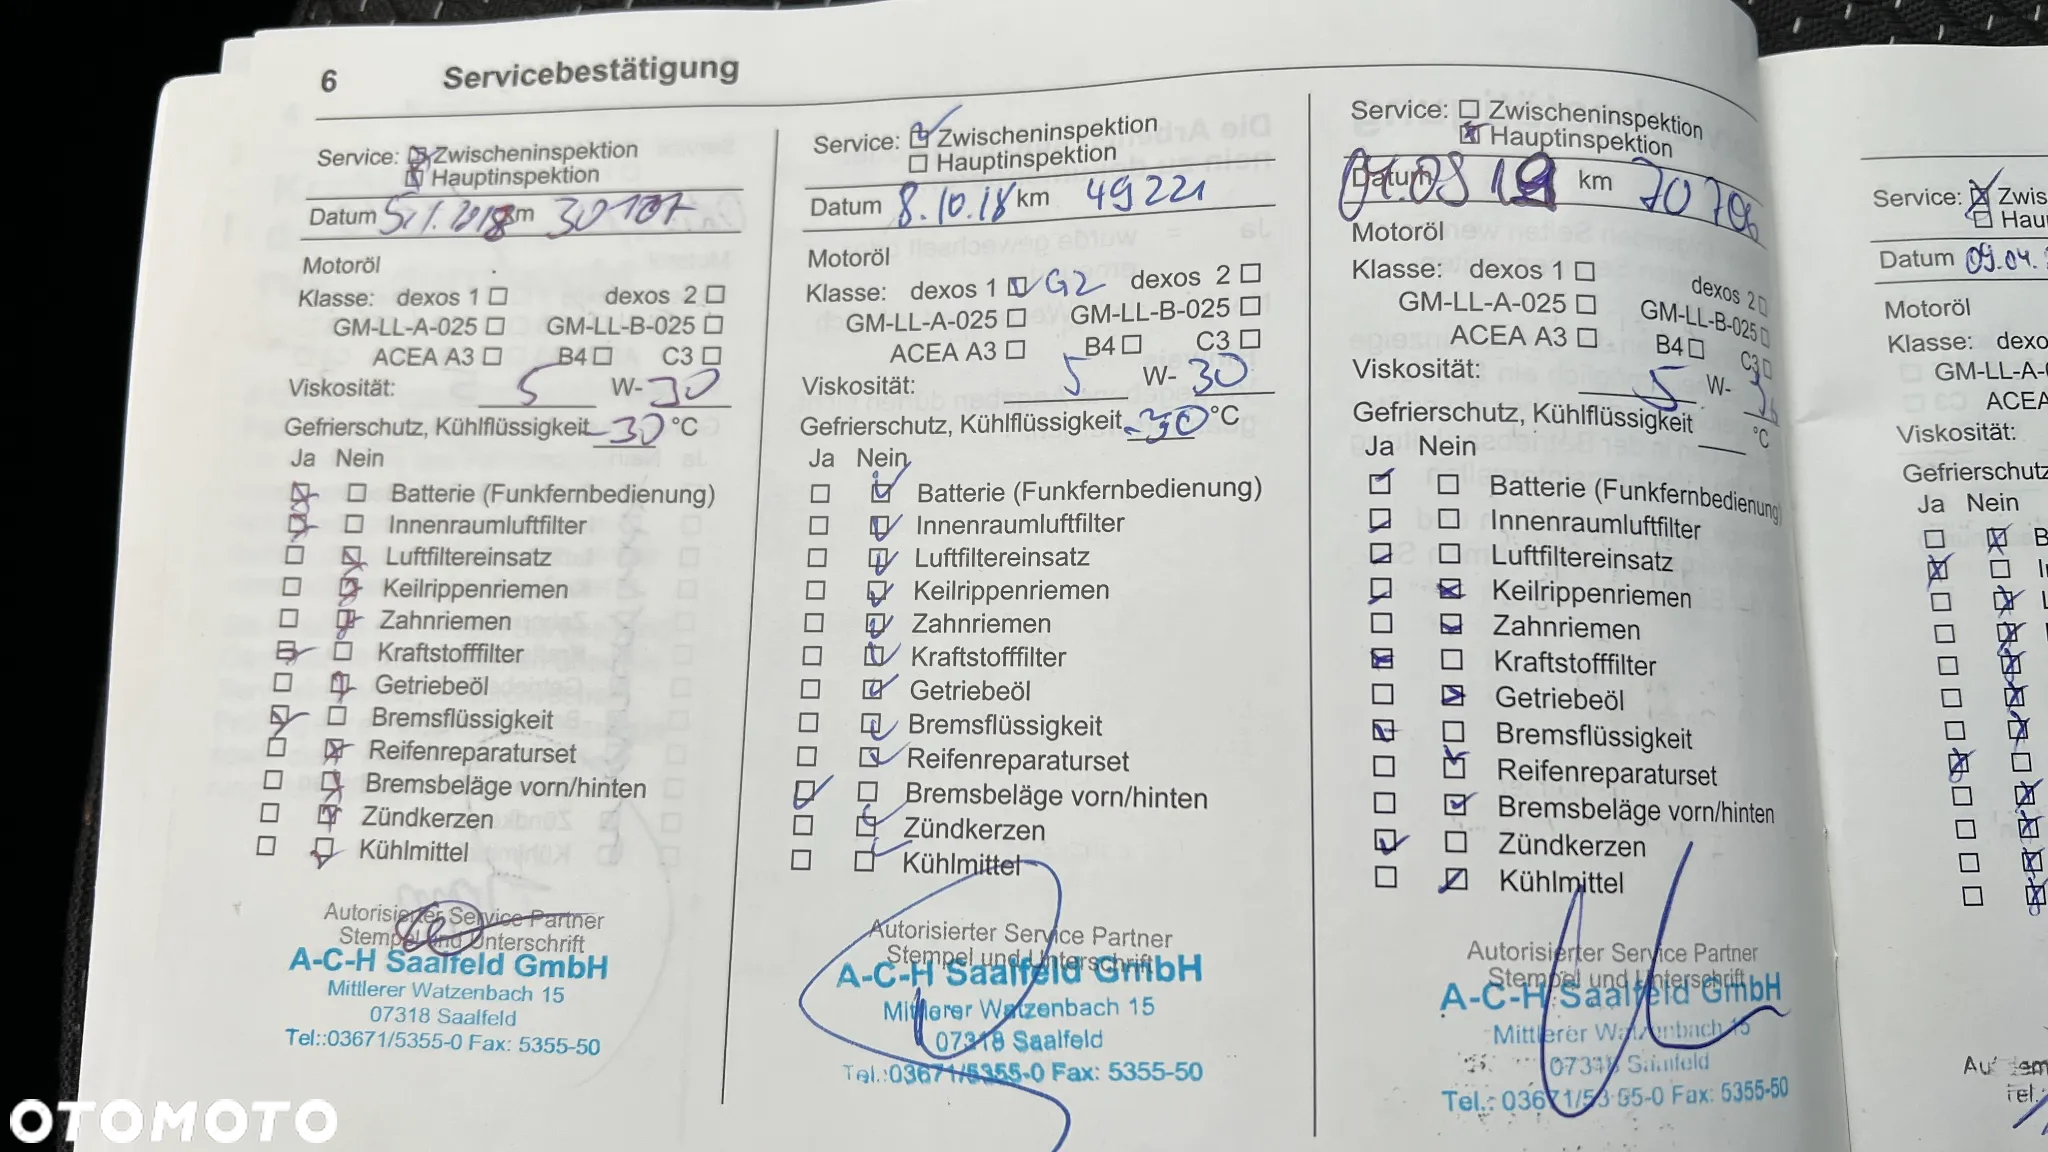 6 Servicebestätigung
Service: Zwischeninspektion
Hauptinspektion
Datum 5.1.2018 km 30107
Motoröl
Klasse: dexos 1 dexos 2
GM-LL-A-025 GM-LL-B-025
ACEA A3 B4 C3
Viskosität: 5 W-30
Gefrierschutz, Kühlflüssigkeit -30 °C
Ja Nein
Batterie (Funkfernbedienung)
Innenraumluftfilter
Luftfiltereinsatz
Keilrippenriemen
Zahnriemen
Kraftstofffilter
Getriebeöl
Bremsflüssigkeit
Reifenreparaturset
Bremsbeläge vorn/hinten
Zündkerzen
Kühlmittel
Autorisierter Service Partner
Stempel und Unterschrift
A-C-H Saalfeld GmbH
Mittlerer Watzenbach 15
07318 Saalfeld
Tel.:03671/5355-0 Fax: 5355-50
Service: Zwischeninspektion
Hauptinspektion
Datum 8.10.18 km 49221
Motoröl
Klasse: dexos 1 G2 dexos 2
GM-LL-A-025 GM-LL-B-025
ACEA A3 B4 C3
Viskosität: 5 W-30
Gefrierschutz, Kühlflüssigkeit -30 °C
Ja Nein
Batterie (Funkfernbedienung)
Innenraumluftfilter
Luftfiltereinsatz
Keilrippenriemen
Zahnriemen
Kraftstofffilter
Getriebeöl
Bremsflüssigkeit
Reifenreparaturset
Bremsbeläge vorn/hinten
Zündkerzen
Kühlmittel
Autorisierter Service Partner
Stempel und Unterschrift
A-C-H Saalfeld GmbH
Mittlerer Watzenbach 15
07318 Saalfeld
Tel.:03671/5355-0 Fax: 5355-50
Service: Zwischeninspektion
Hauptinspektion
Datum km 70706
Motoröl
Klasse: dexos 1 dexos 2
GM-LL-A-025 GM-LL-B-025
ACEA A3 B4 C3
Viskosität: 5 W-
Gefrierschutz, Kühlflüssigkeit °C
Ja Nein
Batterie (Funkfernbedienung)
Innenraumluftfilter
Luftfiltereinsatz
Keilrippenriemen
Zahnriemen
Kraftstofffilter
Getriebeöl
Bremsflüssigkeit
Reifenreparaturset
Bremsbeläge vorn/hinten
Zündkerzen
Kühlmittel
Autorisierter Service Partner
Stempel und Unterschrift
A-C-H Saalfeld GmbH
Mittlerer Watzenbach 15
07318 Saalfeld
Tel.: 03671/5355-0 Fax: 5355-50
Service: Zwis
Hau
Datum 09.04.
Motoröl
Klasse: dexo
GM-LL-A-
ACEA
Viskosität:
Gefrierschutz
Ja Nein
OTOMOTO